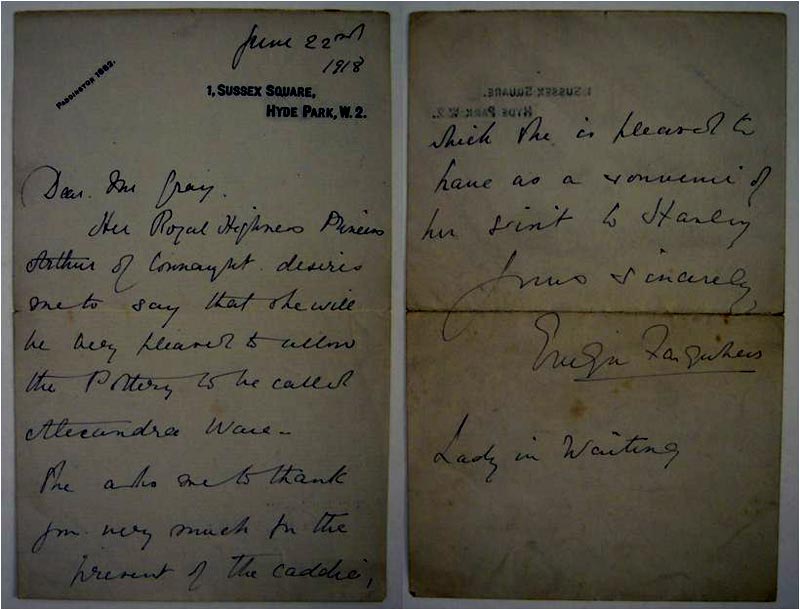 June 22nd
1918
PADDINGTON 1882.
1, SUSSEX SQUARE,
HYDE PARK, W. 2.
Dear Mr Gray.
Her Royal Highness Princess
Arthur of Connaught desires
me to say that she will
be very pleased to allow
the Pottery to be called
Alexandra Ware -
She asks me to thank
you very much for the
present of the caddie,
1, SUSSEX SQUARE,
HYDE PARK, W. 2.
which she is pleased to
have as a souvenir of
her visit to Hanley
Yours sincerely,
Evelyn Farquhar
Lady in Waiting